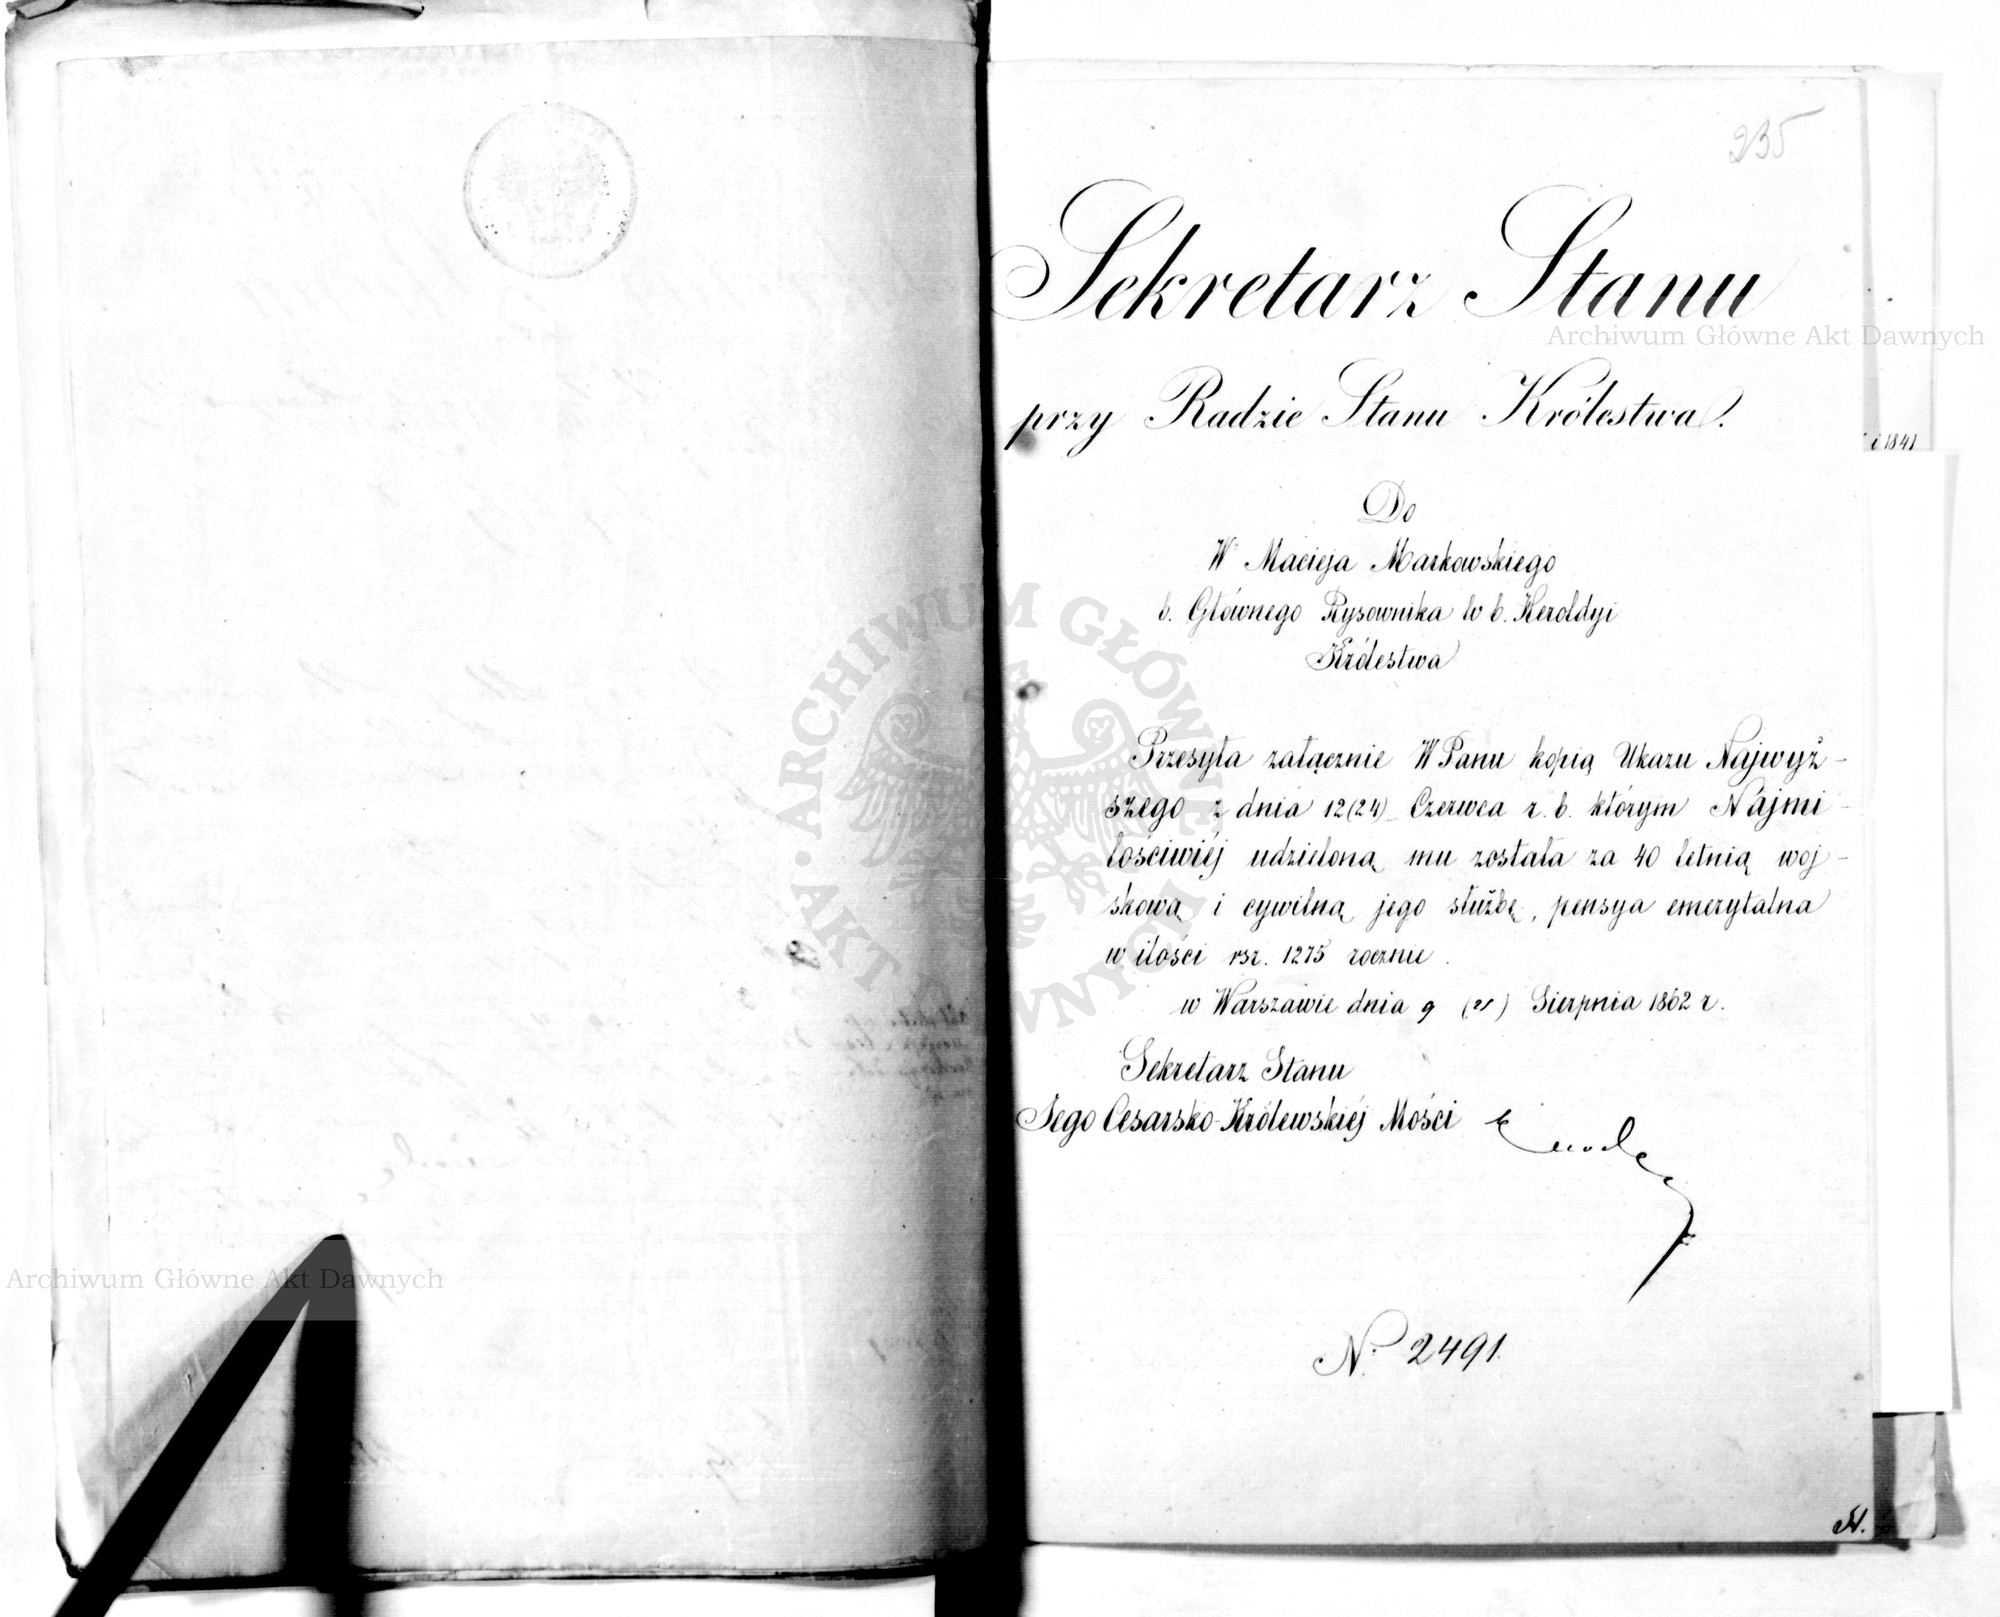 235
Sekretarz Stanu
przy Radzie Stanu Królestwa.
i 1841
Do
W. Macieja Markowskiego
b. Głównego Rysownika w b. Heroldyi
Królestwa
Przesyła załącznie WPanu kopią Ukazu Najwyż-
szego z dnia 12(24) Czerwca r. b. którym Najmi-
łościwiéj udzieloną mu została za 40 letnią woj-
skową i cywilną jego służbę, pensya emerytalna
w ilości rsr. 1275 rocznie.
w Warszawie dnia 9 (21) Sierpnia 1862 r.
Sekretarz Stanu
Jego Cesarsko-Królewskiéj Mości
N. 2491.
Archiwum Główne Akt Dawnych
Archiwum Główne Akt Dawnych
ARCHIWUM GŁÓWNE AKT DAWNYCH